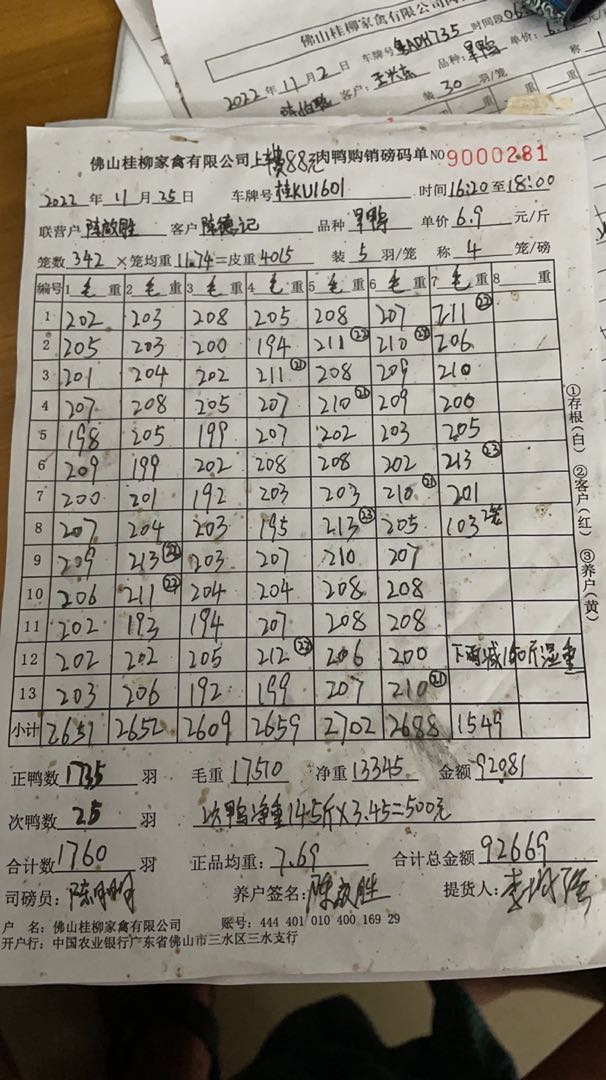 佛山桂柳家禽有限公司
车牌号粤ADH735 时间段06
2022年11月2日
品种:旱鸭 单价:6.
客户:
装30羽/笼 称
重 重
佛山桂柳家禽有限公司上楼88元肉鸭购销磅码单 NO 9000281
2022年11月25日 车牌号桂KU1601 时间16:20至18:00
联营户陈啟胜 客户陈德记 品种旱鸭 单价6.9元/斤
笼数342×笼均重11.74=皮重4015 装5羽/笼 称4笼/磅
编号 1毛重 2毛重 3毛重 4毛重 5毛重 6毛重 7毛重 8重
1 202 203 208 205 208 207 211㉒
2 205 203 200 194 211㉒ 210㉑ 206
3 201 204 202 211㉑ 208 209 210
4 207 208 205 207 210㉑ 209 200
5 198 205 199 207 202 203 205
6 209 199 202 208 208 202 213㉓
7 200 201 192 203 203 210㉑ 201
8 207 204 203 195 213㉓ 205 103 2笼
9 209 213㉒ 203 207 210 207
10 206 211㉒ 204 204 208 208
11 202 193 194 207 208 208
12 202 202 205 212㉒ 206 200 下雨减150斤湿重
13 203 206 192 199 207 210㉑
小计 2651 2652 2609 2659 2702 2688 1549
①存根(白) ②客户(红) ③养户(黄)
正鸭数1735羽 毛重17510 净重13345 金额92081
次鸭数25羽 次鸭净重145斤×3.45=500元
合计数1760羽 正品均重:7.69 合计总金额92669
司磅员: 养户签名:陈啟胜 提货人:
户 名:佛山桂柳家禽有限公司 账号:444 401 010 400 169 29
开户行:中国农业银行广东省佛山市三水区三水支行